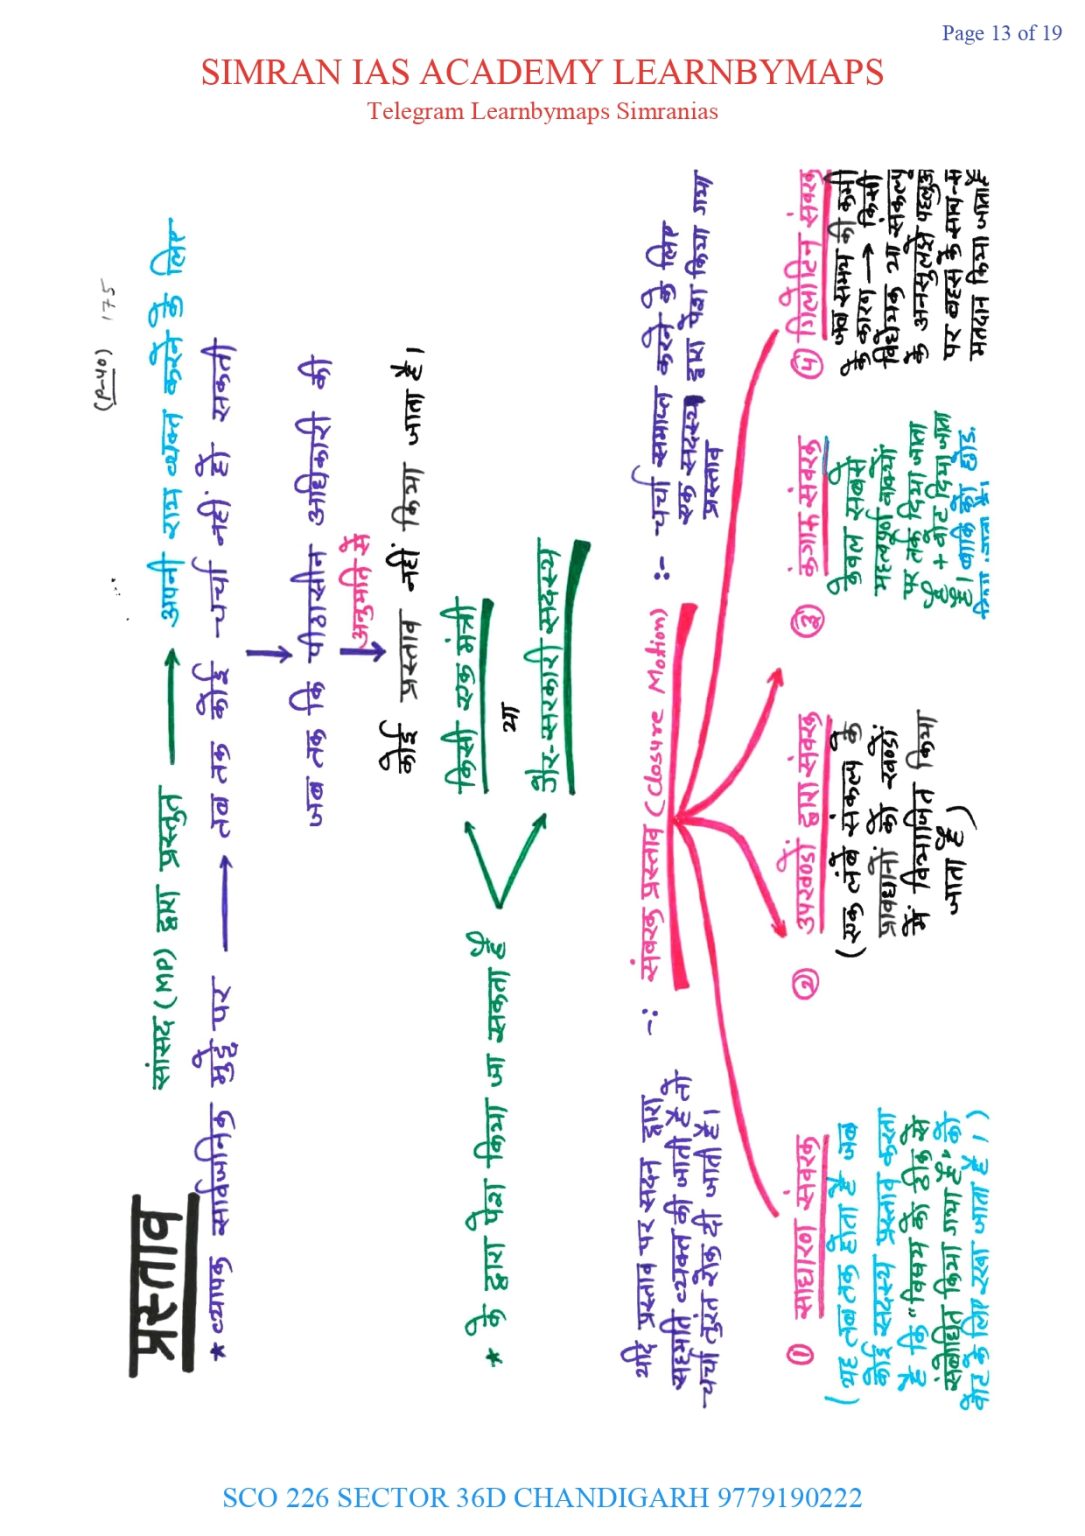 Page 13 of 19
SIMRAN IAS ACADEMY LEARNBYMAPS
Telegram Learnbymaps Simranias
(P-40) 175
प्रस्ताव
सांसद (MP) द्वारा प्रस्तुत → अपनी राय व्यक्त करने के लिए
* व्यापक सार्वजनिक मुद्दे पर → तब तक कोई चर्चा नहीं हो सकती
जब तक कि पीठासीन अधिकारी की
अनुमति से
कोई प्रस्ताव नहीं किया जाता है।
* के द्वारा पेश किया जा सकता है
किसी एक मंत्री
या
गैर-सरकारी सदस्य
यदि प्रस्ताव पर सदन द्वारा
सहमति व्यक्त की जाती है तो
चर्चा तुरंत रोक दी जाती है।
-: संवरक प्रस्ताव (Closure Motion) :-
चर्चा समाप्त करने के लिए
एक सदस्य द्वारा पेश किया गया
प्रस्ताव
① साधारण संवरक
(यह तब तक होता है जब
कोई सदस्य प्रस्ताव करता
है कि "विषय को ठीक से
संबोधित किया गया है" को
वोट के लिए रखा जाता है।)
② उपखण्डों द्वारा संवरक
(एक लंबे संकल्प के
प्रावधानों को खण्डों
में विभाजित किया
जाता है)
③ कंगारू संवरक
केवल सबसे
महत्वपूर्ण वाक्यों
पर तर्क दिया जाता
है + वोट दिया जाता
है। बाकि को छोड़
दिया जाता है।
④ गिलोटिन संवरक
जब समय की कमी
के कारण → किसी
विधेयक या संकल्प
के अनसुलझे पहलुओं
पर बहस के साथ-स
मतदान किया जाता है
SCO 226 SECTOR 36D CHANDIGARH 9779190222